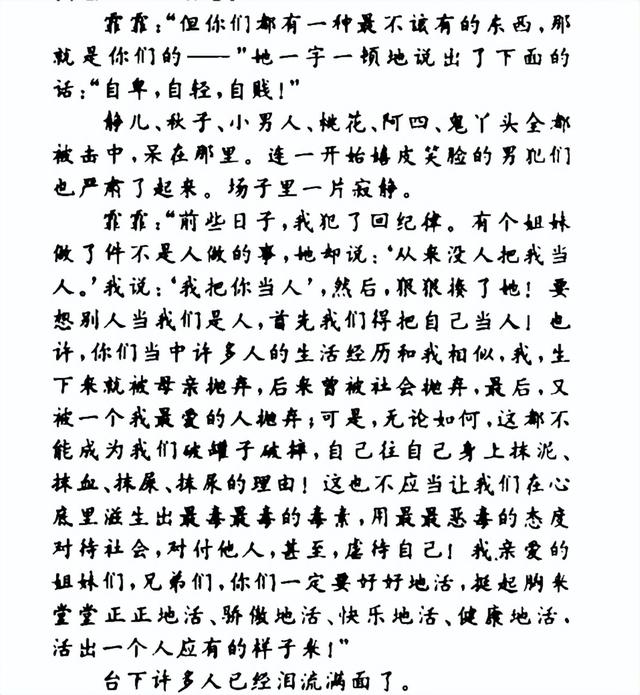 霏霏:“但你们都有一种最不该有的东西,那
就是你们的——”她一字一顿地说出了下面的
话:“自卑,自轻,自贱!”
静儿、秋子、小男人、桃花、阿四、鬼丫头全都
被击中,呆在那里。连一开始嬉皮笑脸的男犯们
也严肃了起来。场子里一片寂静。
霏霏:“前些日子,我犯了回纪律。有个姐妹
做了件不是人做的事,她却说:‘从来没人把我当
人。’我说:‘我把你当人’,然后,狠狠揍了她!要
想别人当我们是人,首先我们得把自己当人!也
许,你们当中许多人的生活经历和我相似,我,生
下来就被母亲抛弃,后来曾被社会抛弃,最后,又
被一个我最爱的人抛弃;可是,无论如何,这都不
能成为我们破罐子破摔,自己往自己身上抹泥、
抹血、抹屎、抹尿的理由!这也不应当让我们在心
底里滋生出最毒最毒的毒素,用最最恶毒的态度
对待社会,对付他人,甚至,虐待自己!我亲爱的
姐妹们,兄弟们,你们一定要好好地活,挺起胸来
堂堂正正地活、骄傲地活、快乐地活、健康地活,
活出一个人应有的样子来!”
台下许多人已经泪流满面了。